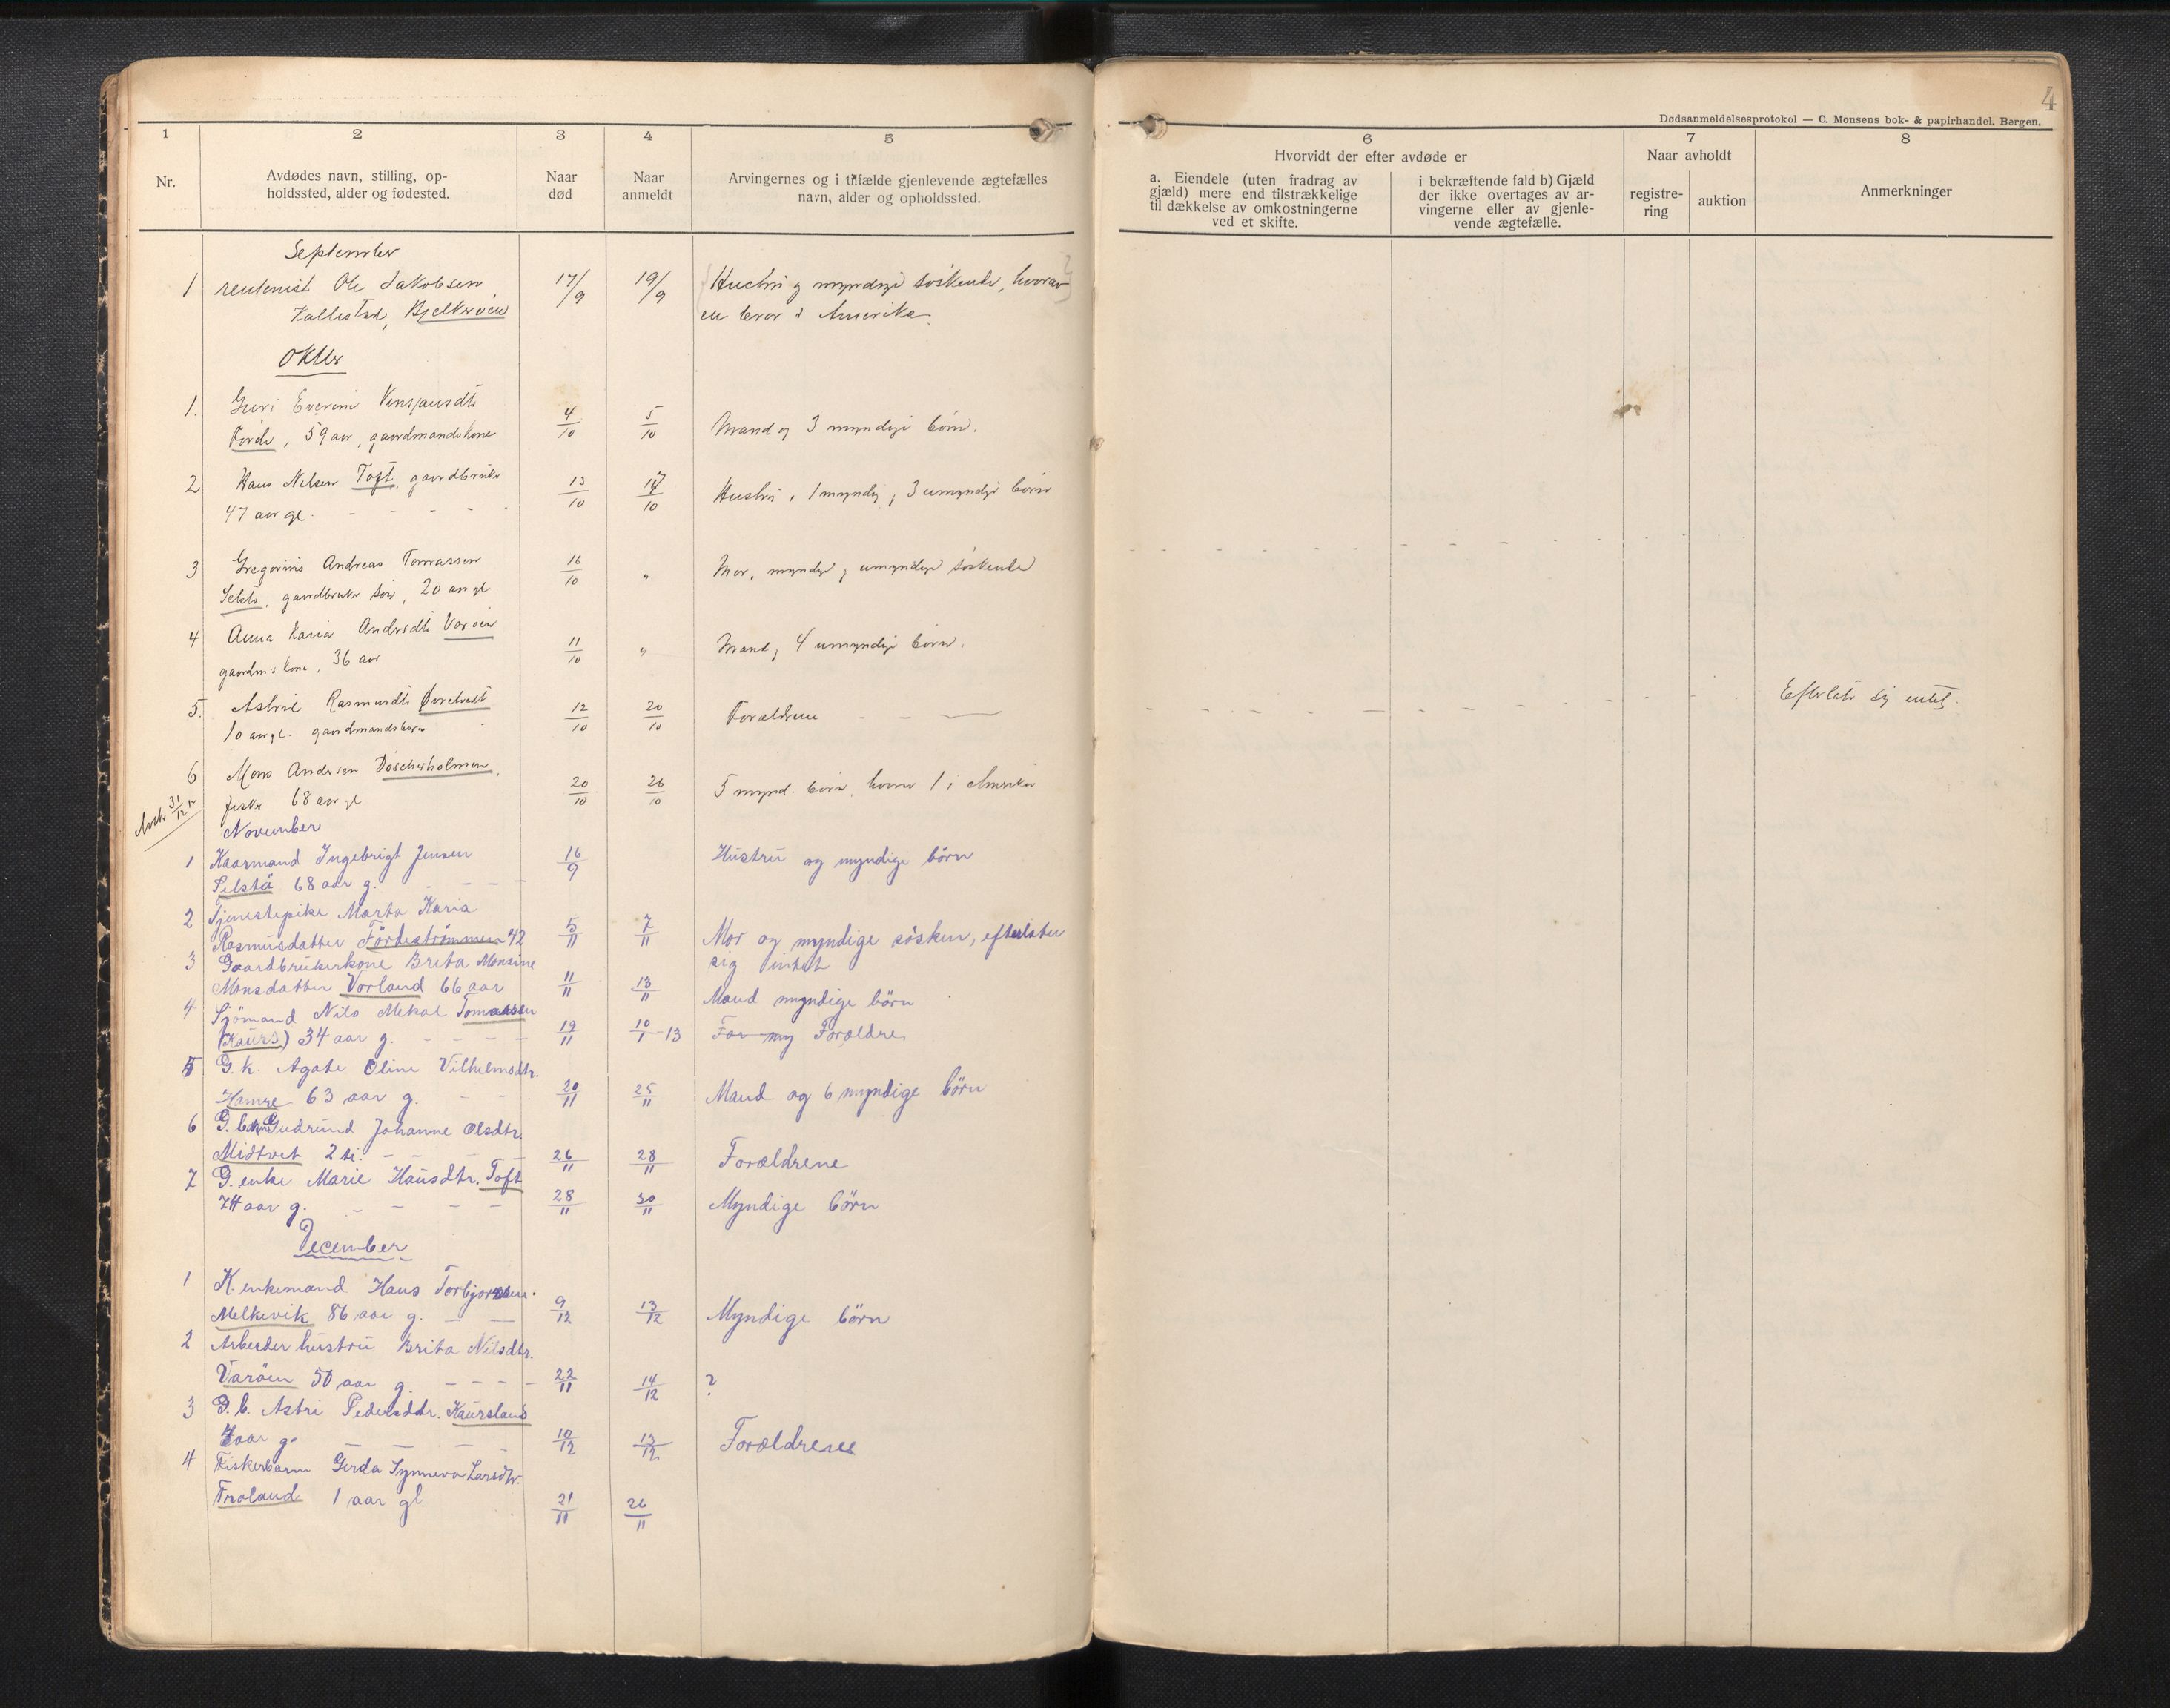 4
Dødsanmeldelsesprotokol — C. Monsens bok- & papirhandel, Bergen.
1 2 3 4 5 6 7 8
Nr.
Avdødes navn, stilling, op-
holdssted, alder og fødested.
Naar
død
Naar
anmeldt
Arvingernes og i tilfælde gjenlevende ægtefælles
navn, alder og opholdssted.
Hvorvidt der efter avdøde er
a. Eiendele (uten fradrag av
gjæld) mere end tilstrækkelige
til dækkelse av omkostningerne
ved et skifte.
i bekræftende fald b) Gjæld
der ikke overtages av ar-
vingerne eller av gjenle-
vende ægtefælle.
Naar avholdt
registre-
ring
auktion
Anmerkninger
September
1 rentenist Ole Jakobsen 17/9 19/9 Hustru og myndige søskende, hvorav
Kallestad, Bjelkarøen en bror i Amerika
Oktbr
1. Guri Everine
Førde, 59 aar, gaardmandskone 4/10 5/10 Mand og 3 myndige børn.
2 Hans Nilsen Toft, gaardbruker 13/10 17/10 Hustru, 1 myndig, 3 umyndige børn
47 aar gl. - - - -
3 Gregorius Andreas Tomassen 16/10 " Mor, myndige og umyndige søskende
gaardbruker søn, 20 aar gl
4 Anna Karia Andersdtr Varøen 11/10 " Mand, 4 umyndige børn.
gaardm.s kone, 36 aar
5. Astrid Rasmusdtr 12/10 20/10 Forældrene - - — Efterlater sig intet.
10 aar gl. gaardmandsbarn
6 Mons Andersen 20/10 26/10 5 mynd. børn, hvorav 1 i Amerika
fisker 68 aar gl
31/12 12
November
1 Kaarmand Ingebrigt Jensen 16/9 Hustru og myndige börn
Selstø 68 aar g. - - - -
2 Tjenestepike Marta Karia
Rasmusdatter Fördeströmmen 42 5/11 7/11 Mor og myndige sösken, efterlater
sig intet
3 Gaardbrukerkone Brita Monsine
Monsdatter Vorland 66 aar 11/11 13/11 Mand myndige börn
4 Sjömand Nils Mekal Tomassen
(Kaurs) 34 aar g. - - - - 19/11 10/1-13 Far my Forældre
5 G.k. Agate Oline Vilhelmsdtr.
Hamre 63 aar g. - - 20/11 25/11 Mand og 6 myndige börn
6 G. Gudrund Johanne Olsdtr.
Midtvet 2 ti. - - - - 26/11 28/11 Forældrene
7 G. enke Marie Hansdtr. Toft
74 aar g. - - - - 28/11 30/11 Myndige börn
December
1 K. enkemand Hans Torbjornsen.
Melkevik 86 aar g. — — 9/12 13/12 Myndige börn
2 Arbeider hustru Brita Nilsdtr.
Varöen 50 aar g. - - - - 22/11 14/12 ?
3 G.b. Astri Pedersdtr. Kaursland
7 aar g. — — — 10/12 13/12 Forældrene
4 Fiskerbarn Gerda Synneva Larsdtr.
Troland 1 aar gl. 21/11 26/11